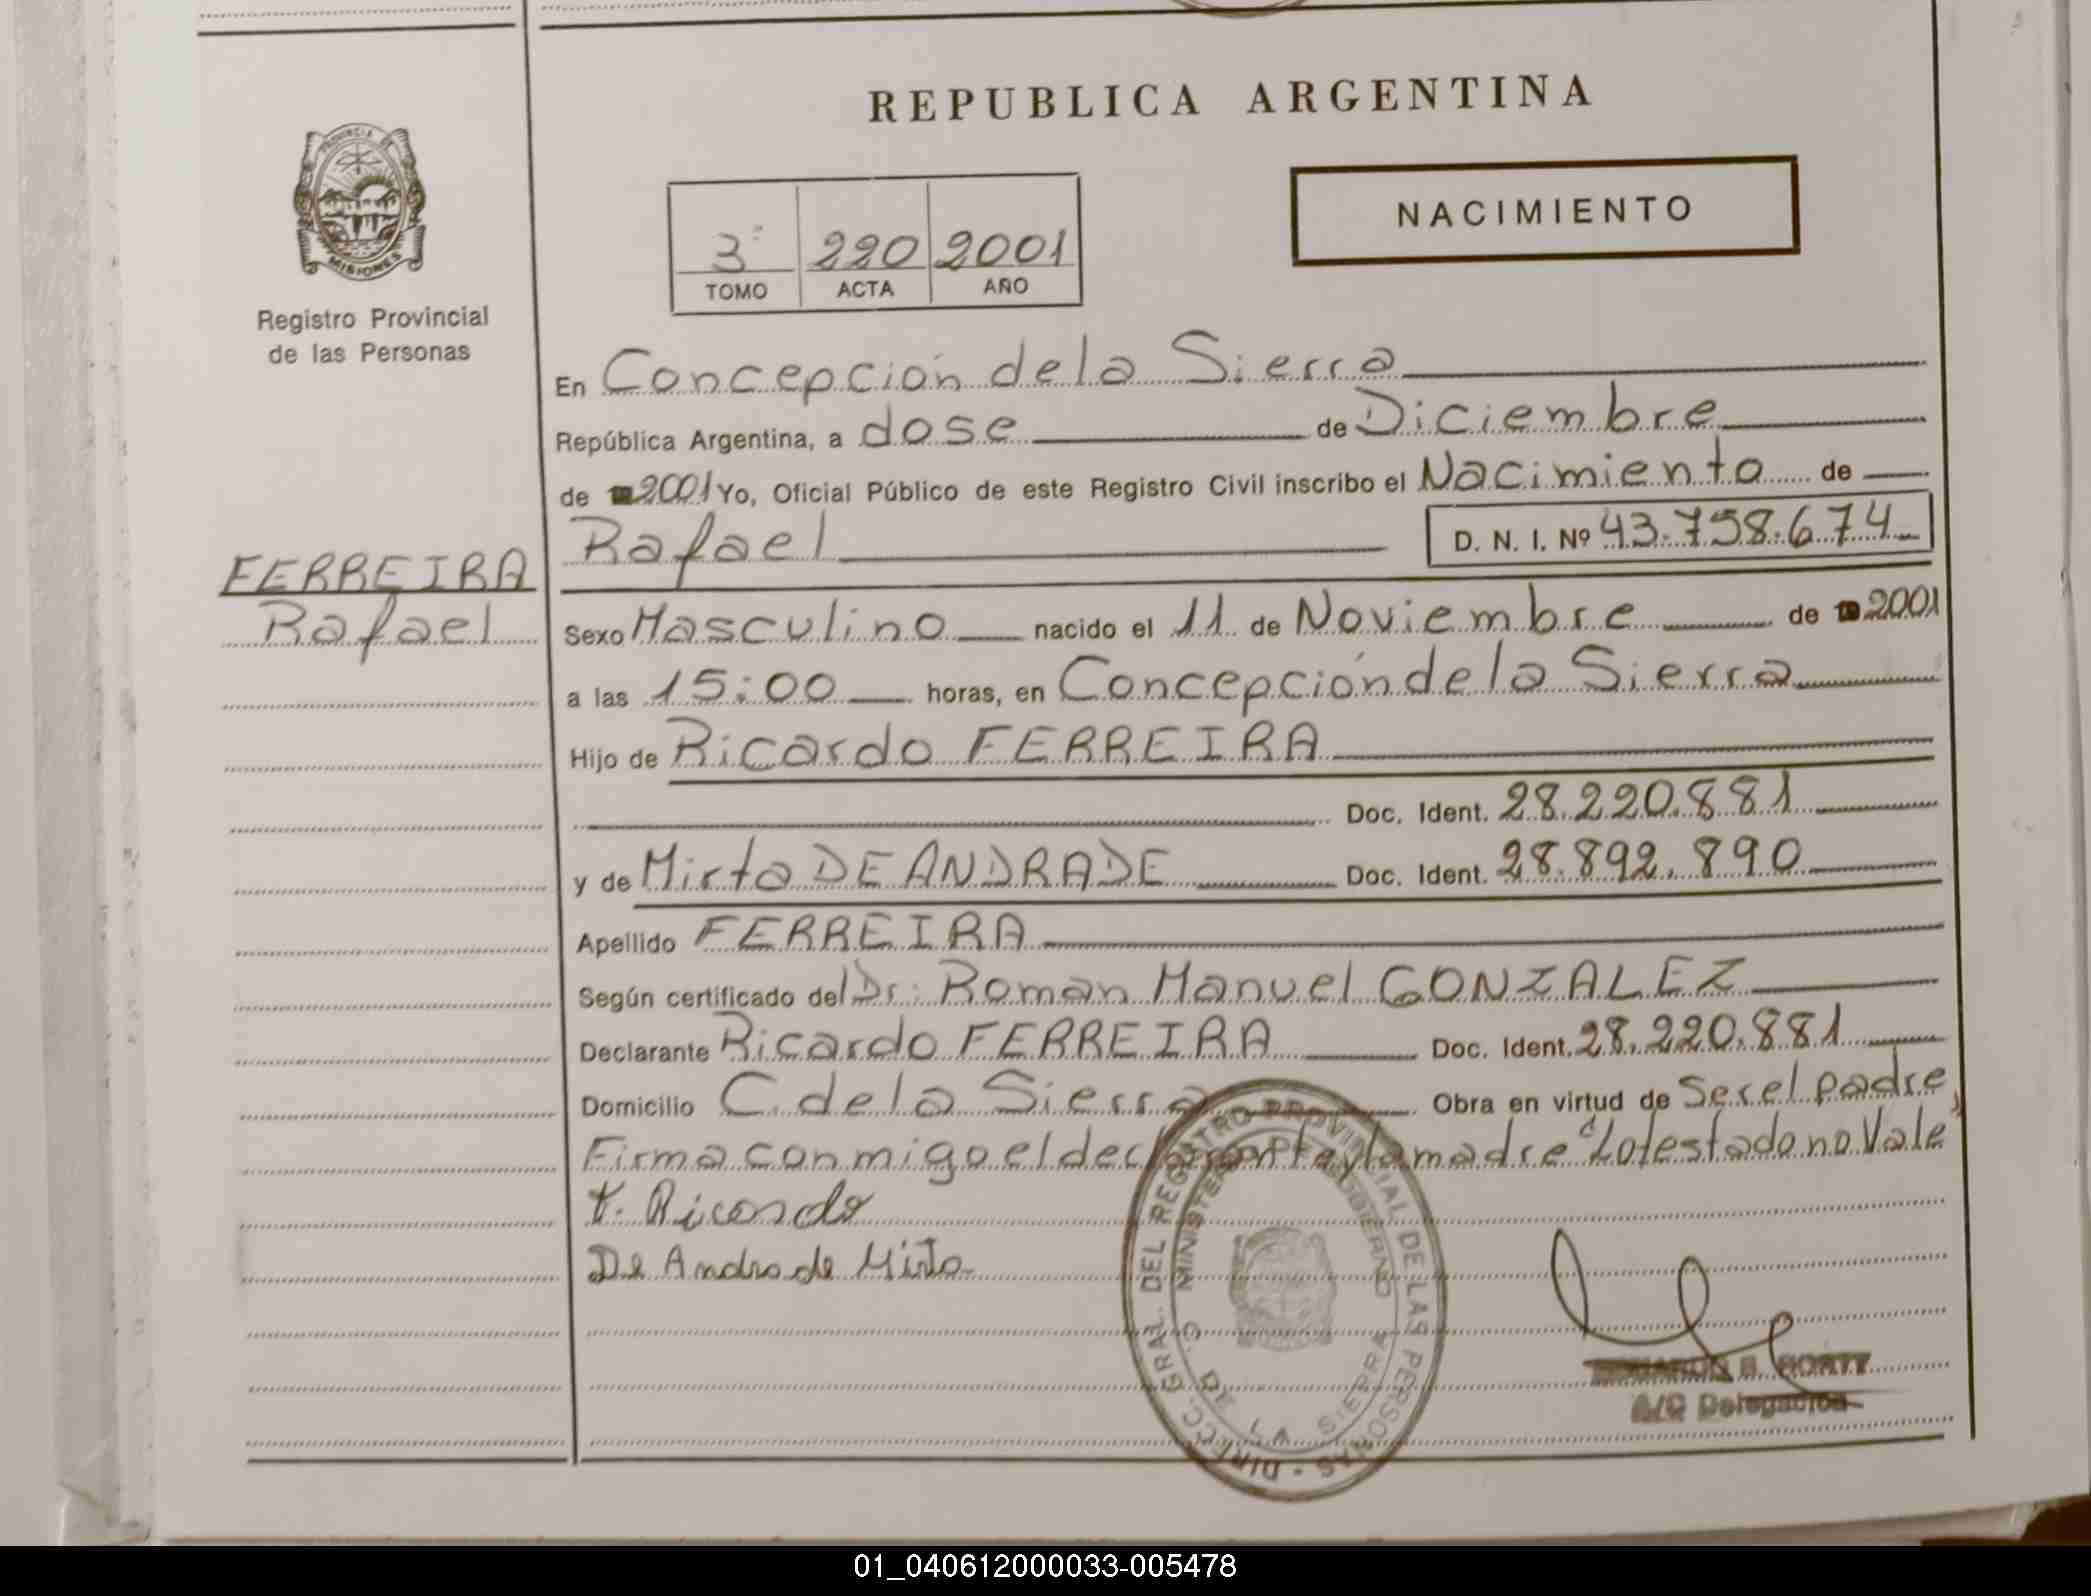 REPUBLICA ARGENTINA
NACIMIENTO
3º 220 2001
TOMO ACTA AÑO
PROVINCIA DE
MISIONES
Registro Provincial
de las Personas
FERREIRA
Rafael
En Concepción de la Sierra
República Argentina, a dose de Diciembre
de 2001 Yo, Oficial Público de este Registro Civil inscribo el Nacimiento de
Rafael D. N. I. Nº 43.758.674
Sexo Masculino nacido el 11 de Noviembre de 2001
a las 15:00 horas, en Concepción de la Sierra
Hijo de Ricardo FERREIRA
Doc. Ident. 28.220.881
y de Mirta DE ANDRADE Doc. Ident. 28.892.890
Apellido FERREIRA
Según certificado del Dr: Roman Manuel GONZALEZ
Declarante Ricardo FERREIRA Doc. Ident. 28.220.881
Domicilio C. de la Sierra Obra en virtud de Ser el padre
Firma conmigo el declarante y la madre "Lo testado no Vale"
F. Ricardo
De Andrade Mirta
DIRECC. GRAL. DEL REGISTRO PROVINCIAL DE LAS PERSONAS
MINISTERIO DE GOBIERNO
C. DE LA SIERRA
A/C Delegación
01_040612000033-005478